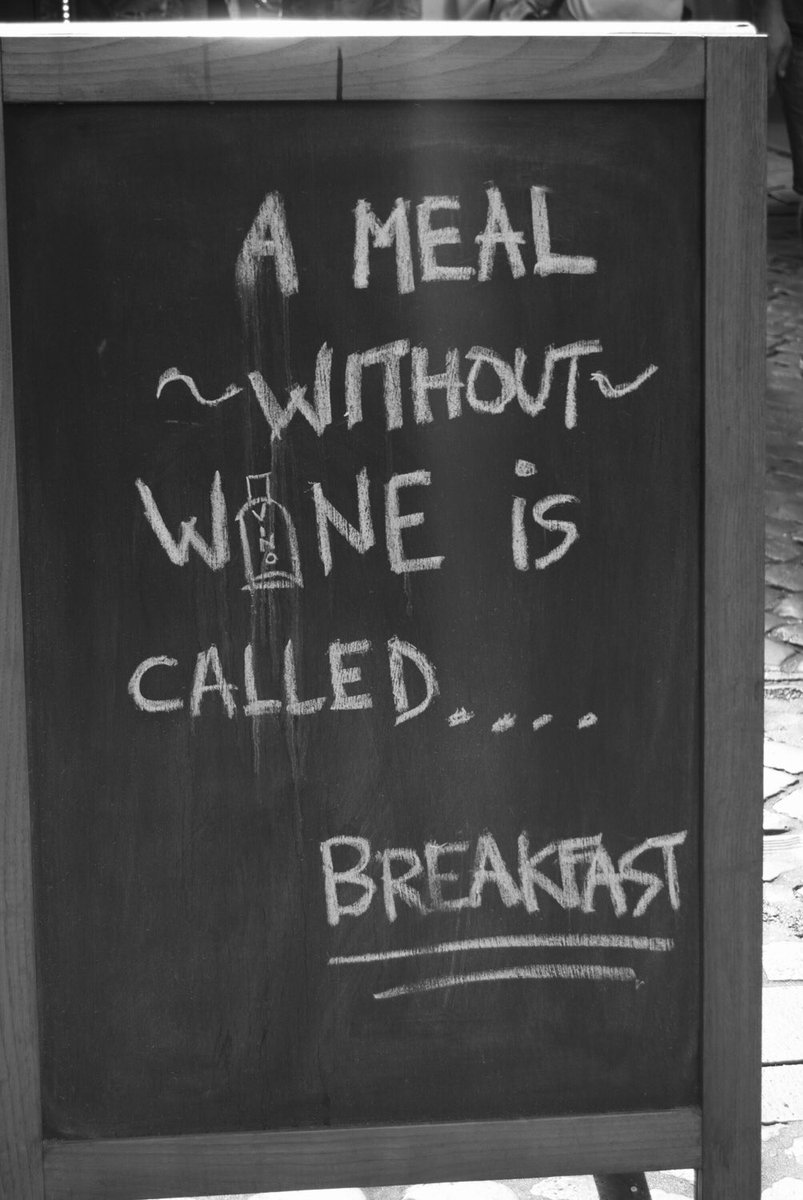 A MEAL
~WITHOUT~
WINE is
VINO
CALLED....
BREAKFAST